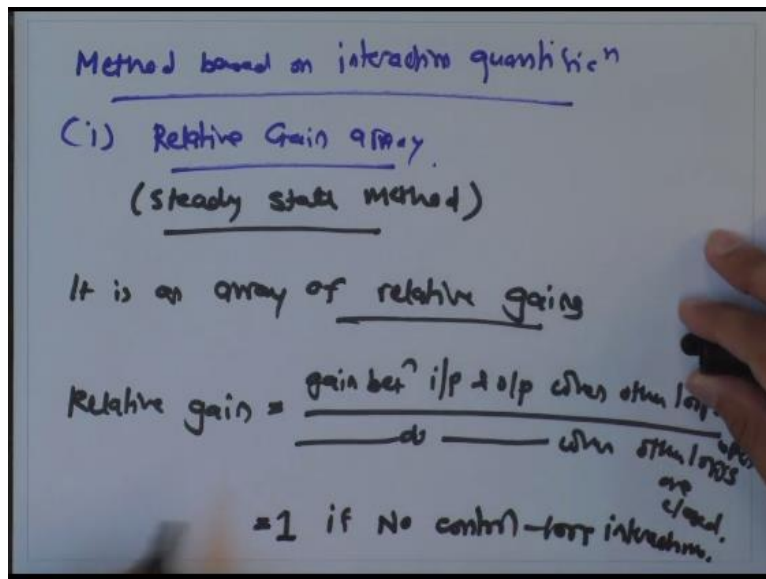 Method based on interaction quantificⁿ
(i) Relative Gain array.
(steady state method)
It is an array of relative gains
Relative gain = gain betⁿ i/p & o/p when other loops open
do when other loops are closed.
=1 if No control-loop interaction.